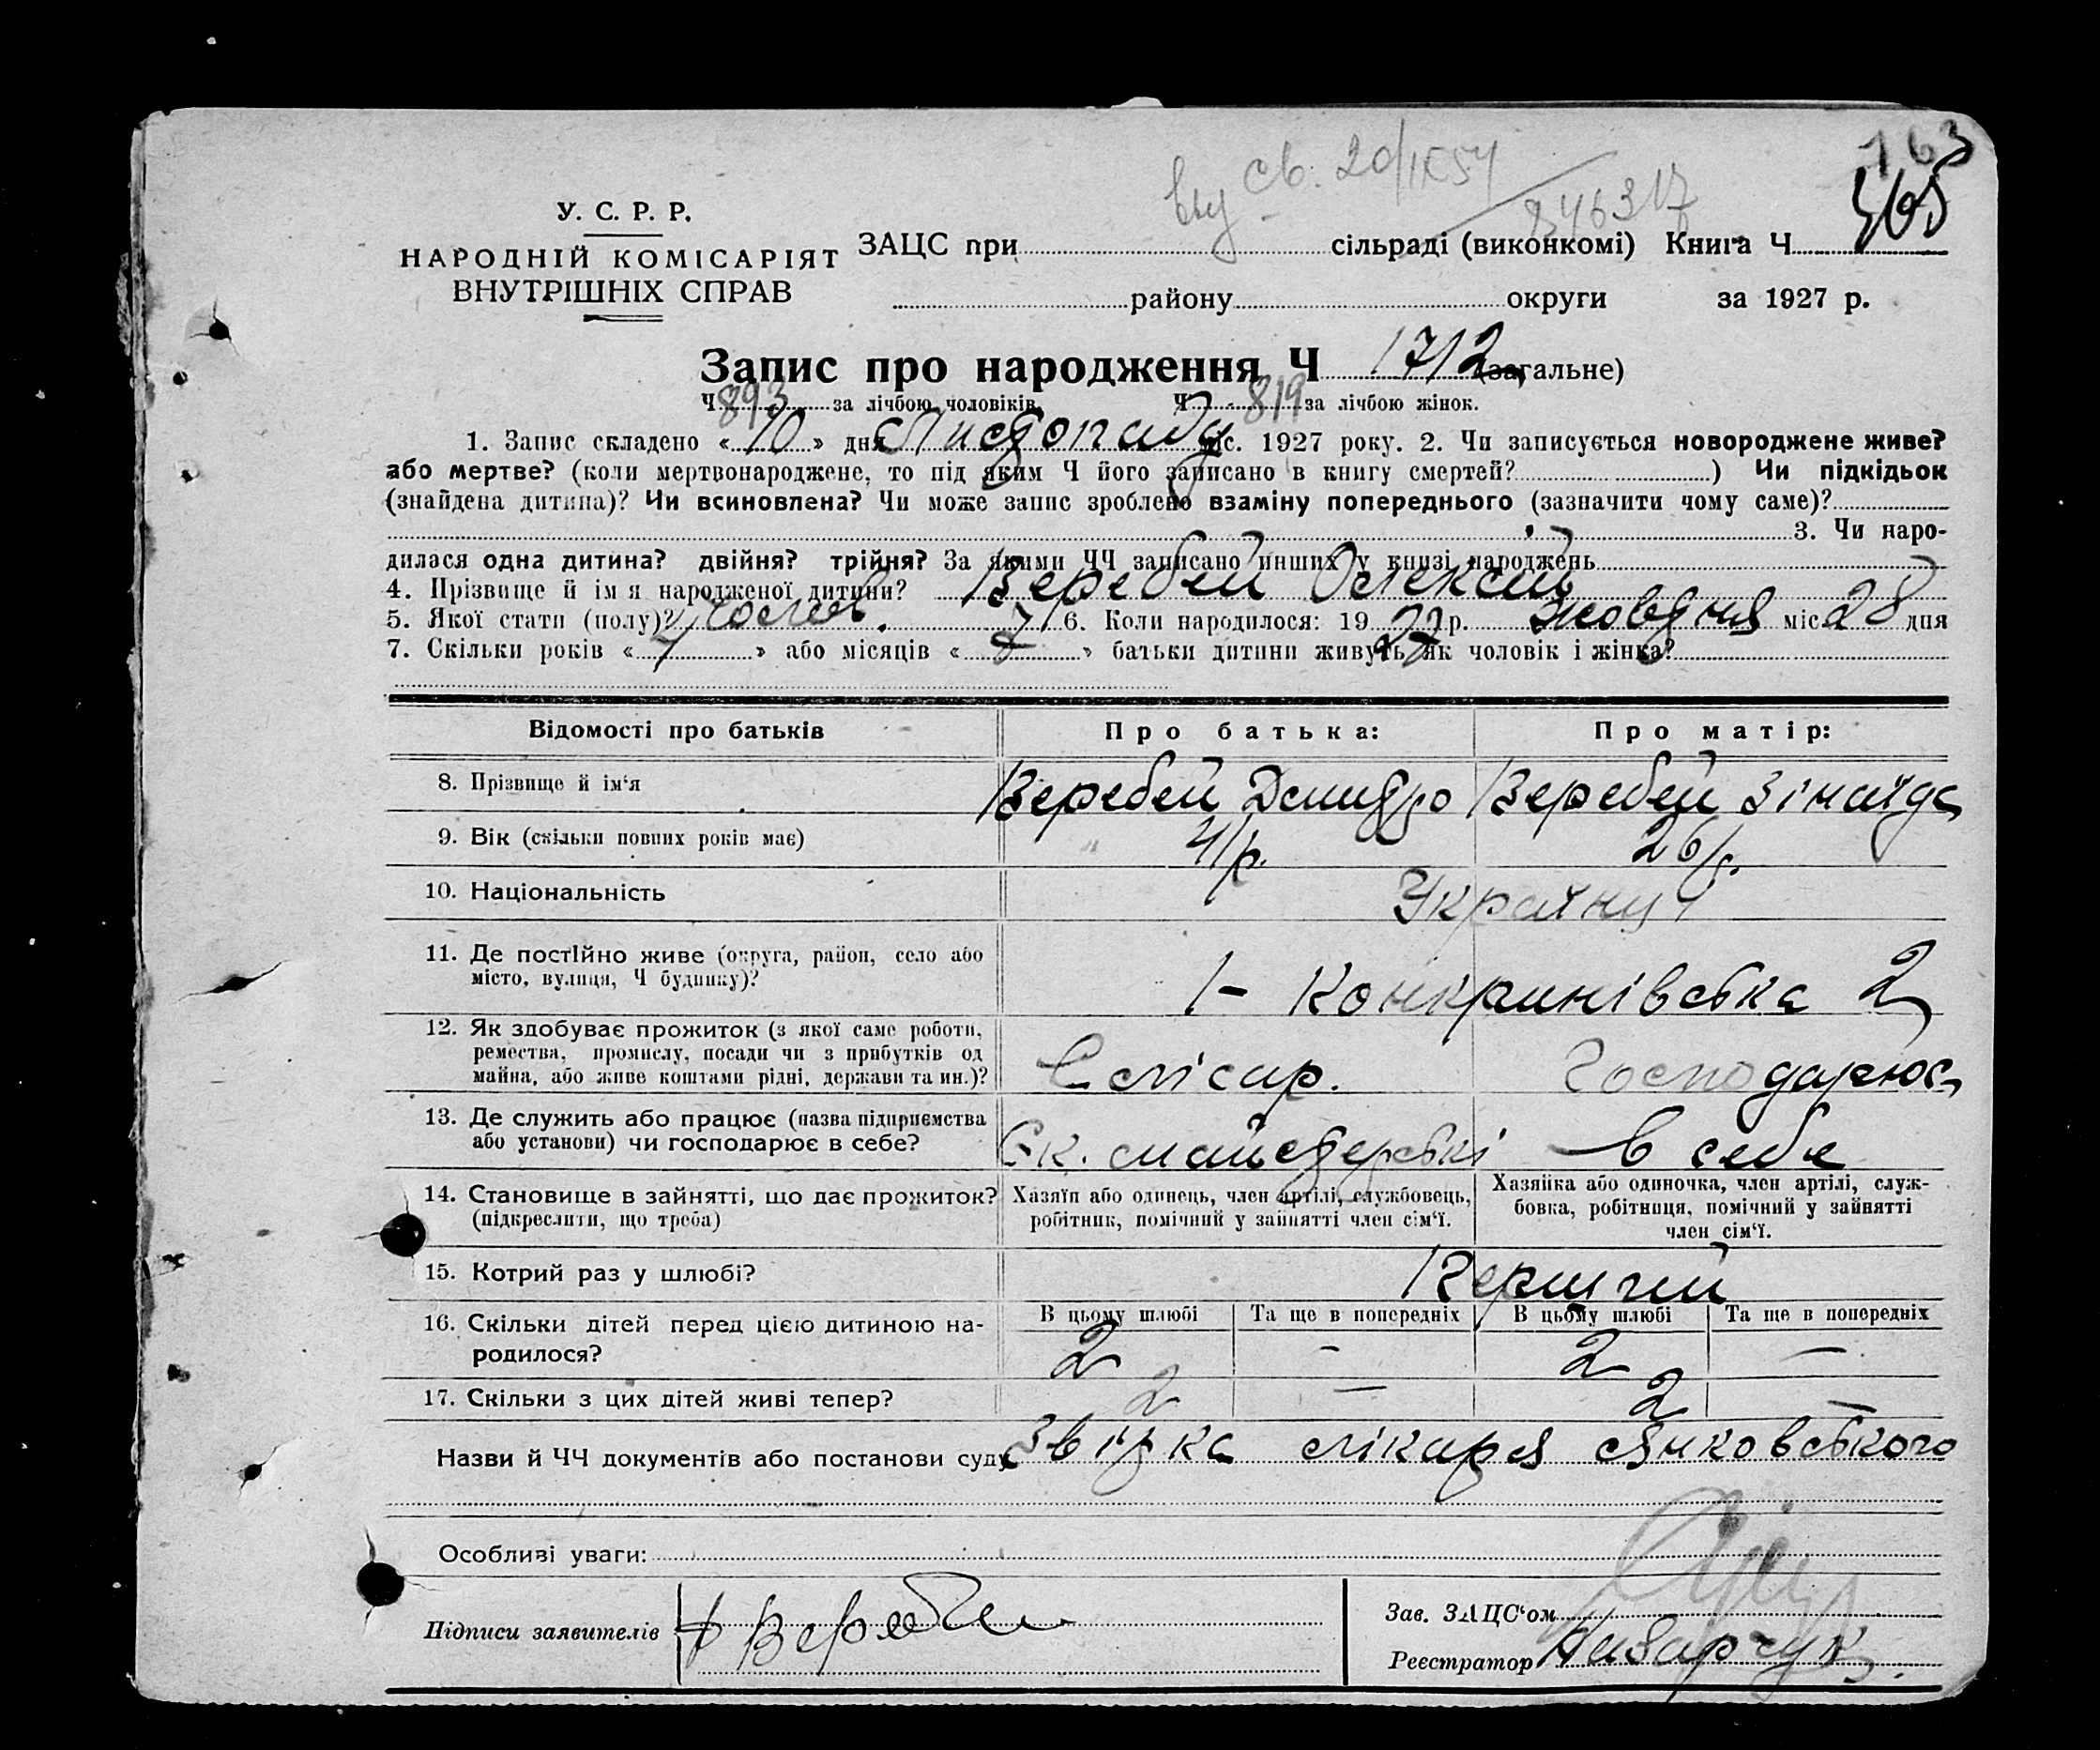 163
вид св. 20/IX 54
346317
У. С. Р. Р.
НАРОДНІЙ КОМІСАРІЯТ
ВНУТРІШНІХ СПРАВ
ЗАЦС при сільраді (виконкомі) Книга Ч
району округи за 1927 р.
Запис про народження Ч 1712 (загальне)
Ч 893 за лічбою чоловіків. Ч 819 за лічбою жінок.
1. Запис складено « 10 » дня Листопаду міс. 1927 року. 2. Чи записується новороджене живе?
або мертве? (коли мертвонароджене, то під яким Ч його записано в книгу смертей? ) Чи підкідьок
(знайдена дитина)? Чи всиновлена? Чи може запис зроблено взаміну попереднього (зазначити чому саме)?
3. Чи наро-
дилася одна дитина? двійня? трійня? За якими ЧЧ записано инших у книзі народжень
4. Прізвище й ім я народженої дитини? Веребей Олексій
5. Якої стати (полу)? чолов. 6. Коли народилося: 19 27 р. жовтня міс 28 дня
7. Скільки років « 7 » або місяців « » батьки дитини живуть як чоловік і жінка?
Відомості про батьків Про батька: Про матір:
8. Прізвище й ім‘я Веребей Дмитро Веребей Зінаїда
9. Вік (скільки повних років має) 41 р. 26 р.
10. Національність Українці
11. Де постійно живе (округа, район, село або
місто, вулиця, Ч будинку)? 1- Конкринівська 2
12. Як здобуває прожиток (з якої саме роботи,
ремества, промислу, посади чи з прибутків од
майна, або живе коштами рідні, держави та ин.)? Слісар. Господарює
13. Де служить або працює (назва підприємства
або установи) чи господарює в себе? майстерські в себе
14. Становище в зайнятті, що дає прожиток?
(підкреслити, що треба)
Хазяїн або одинець, член артілі, службовець,
робітник, помічний у зайнятті член сім‘ї.
Хазяйка або одиночка, член артілі, служ-
бовка, робітниця, помічний у зайнятті
член сім‘ї.
15. Котрий раз у шлюбі? Перший
16. Скільки дітей перед цією дитиною на-
родилося?
В цьому шлюбі Та ще в попередніх В цьому шлюбі Та ще в попередніх
2 - 2 —
17. Скільки з цих дітей живі тепер? 2 — 2 —
Назви й ЧЧ документів або постанови суду Звізка лікаря Янковського
Особливі уваги:
Підписи заявителів
Зав. ЗАЦС‘ом
Реєстратор Назарчук.